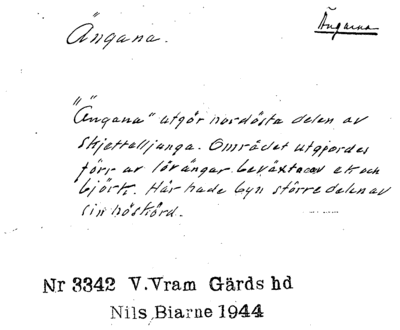 Ängana.
Ängarna
"Ängana" utgör nordösta delen av
Skjettelljunga. Området utgjordes
förr av lövängar beväxta av ek och
björk. Här hade byn större delen av
sin höskörd.
Nr 3342 V.Vram Gärds hd
Nils Biarne 1944